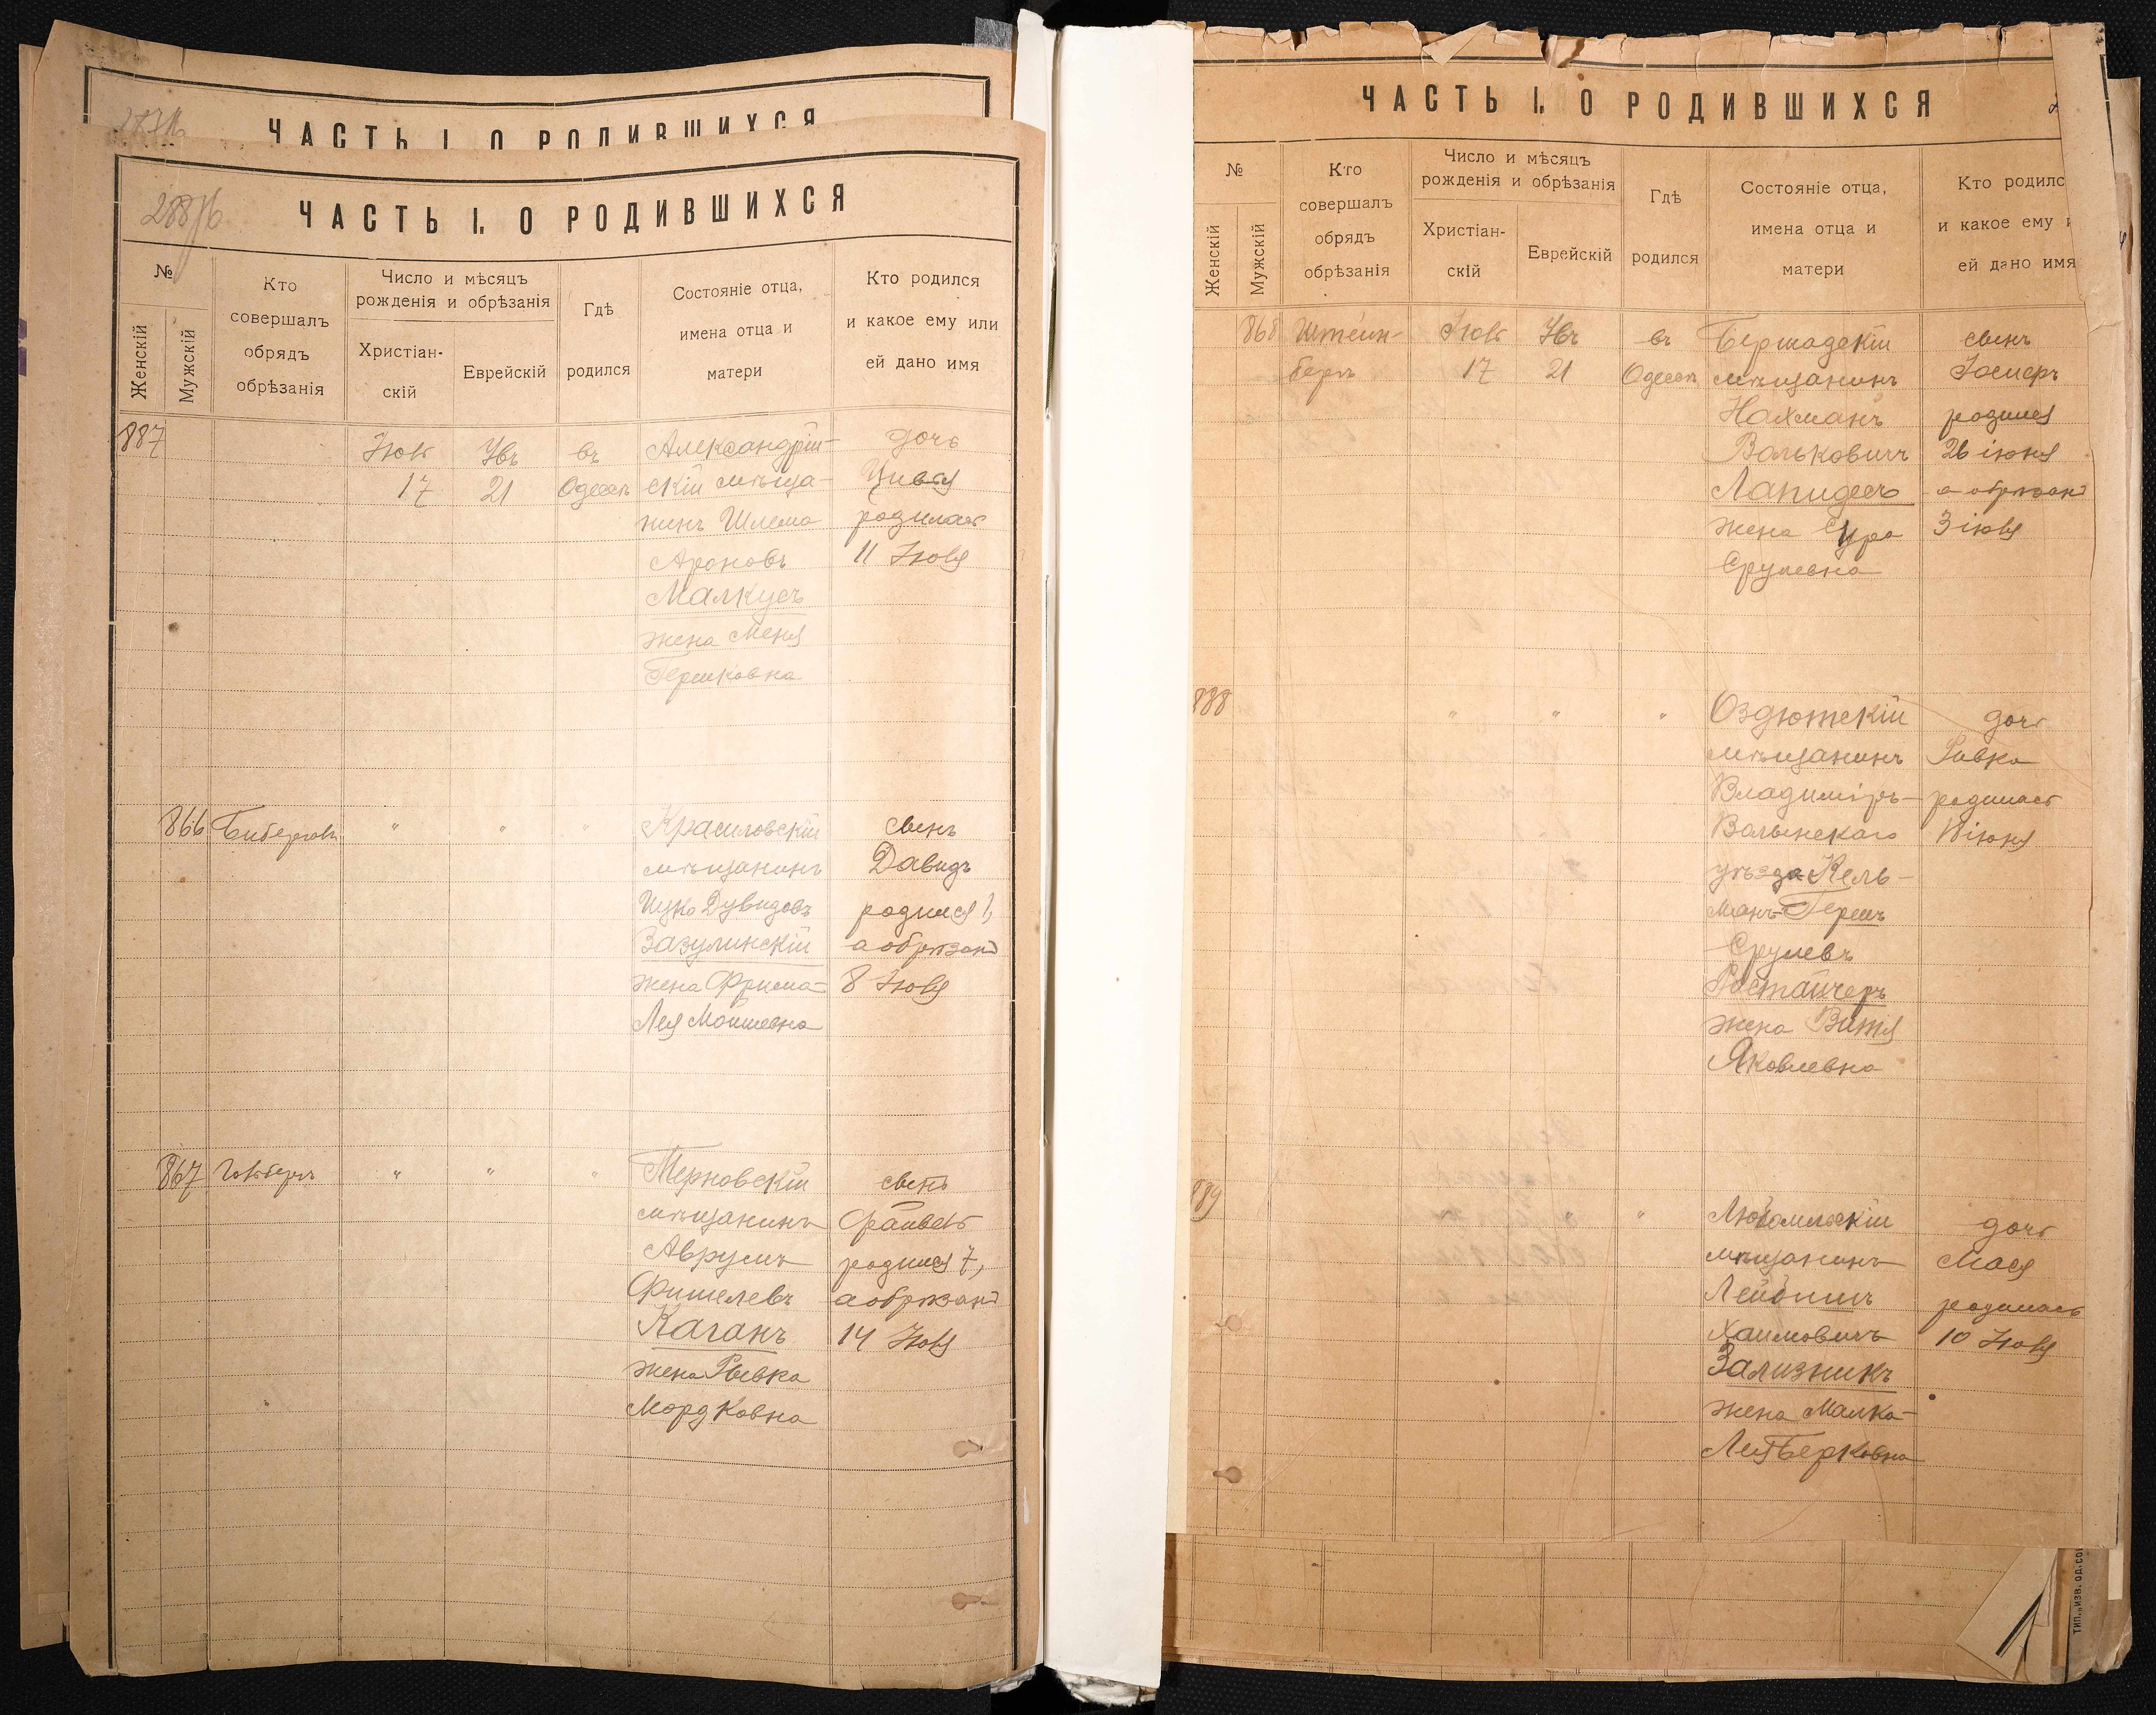 ЧАСТЬ I. О РОДИВШИХСЯ
ЧАСТЬ I. О РОДИВШИХСЯ
№
Женскій
Мужскій
Кто
совершалъ
обрядъ
обрѣзанія
Число и мѣсяцъ
рожденія и обрѣзанія
Христіан-
скій
Еврейскій
Гдѣ
родился
Состояніе отца,
имена отца и
матери
Кто родился
и какое ему или
ей дано имя
887
Іюль
17
21
въ
Одессѣ
Александрій-
скій мѣща-
нинъ Шлема
Ароновъ
Малкусъ
жена Меня
Гершковна
дочь
Цивья
родилась
11 Іюля
866
"
"
"
Красиловскій
мѣщанинъ
Ицко Дувидовъ
Зазулинскій
жена Фрима-
Лея Мошковна
сынъ
Давидъ
родился 1,
а обрѣзанъ
8 Іюля
867
"
"
"
Терновскій
мѣщанинъ
Аврумъ
Фишелевъ
Каганъ
жена Рывка
Мордковна
сынъ
Файвель
родился 7,
а обрѣзанъ
14 Іюля
ЧАСТЬ I. О РОДИВШИХСЯ
№
Женскій
Мужскій
Кто
совершалъ
обрядъ
обрѣзанія
Число и мѣсяцъ
рожденія и обрѣзанія
Христіан-
скій
Еврейскій
Гдѣ
родился
Состояніе отца,
имена отца и
матери
Кто родилс
и какое ему и
ей дано имя
868
Штейн-
бергъ
Іюль
17
21
въ
Одессѣ
Бершадскій
мѣщанинъ
Нахманъ
Вольковичъ
Лапидесъ
жена Сура
Срулевна
сынъ
Іосифъ
родился
26 іюня
а обрѣзанъ
3 іюля
888
"
"
"
Оздютскій
мѣщанинъ
Владиміръ-
Волынскаго
уѣзда Кель-
манъ-Гершъ
Срулевъ
Ростайчеръ
жена Витя
Яковлевна
дочь
Ривка
родилась
889
"
"
Любомльскій
мѣщанинъ
Лейбишъ
Хаимовичъ
Зализникъ
жена Малка-
Лея Берковна
дочь
Мася
родилась
10 Іюля